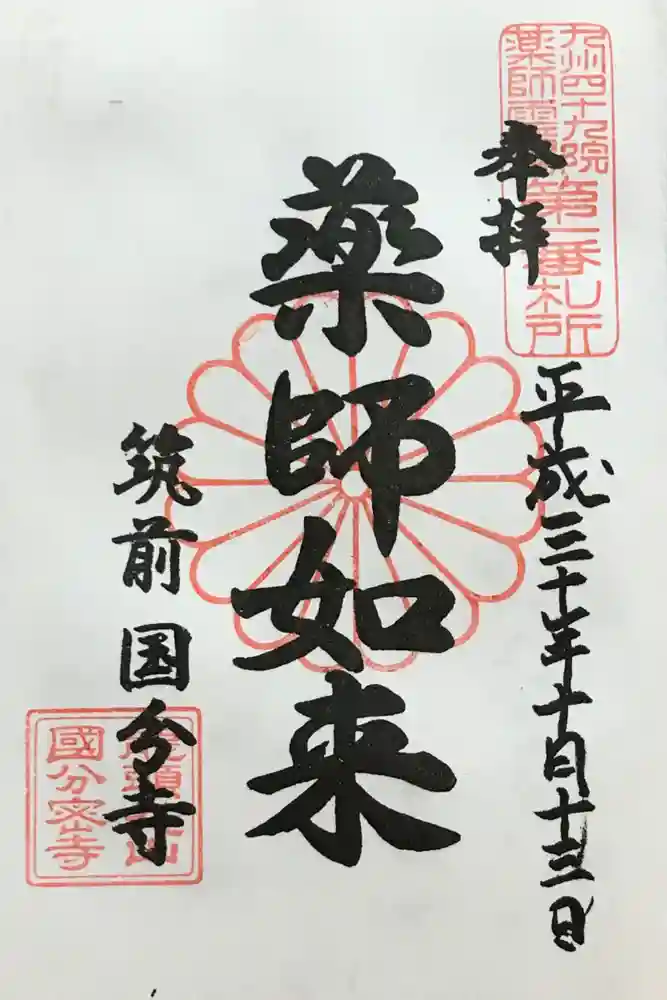 九州四十九院
薬師霊
第一番札所
奉拝
平成三十年十月十三日
薬師如来
筑前国分寺
國分密寺